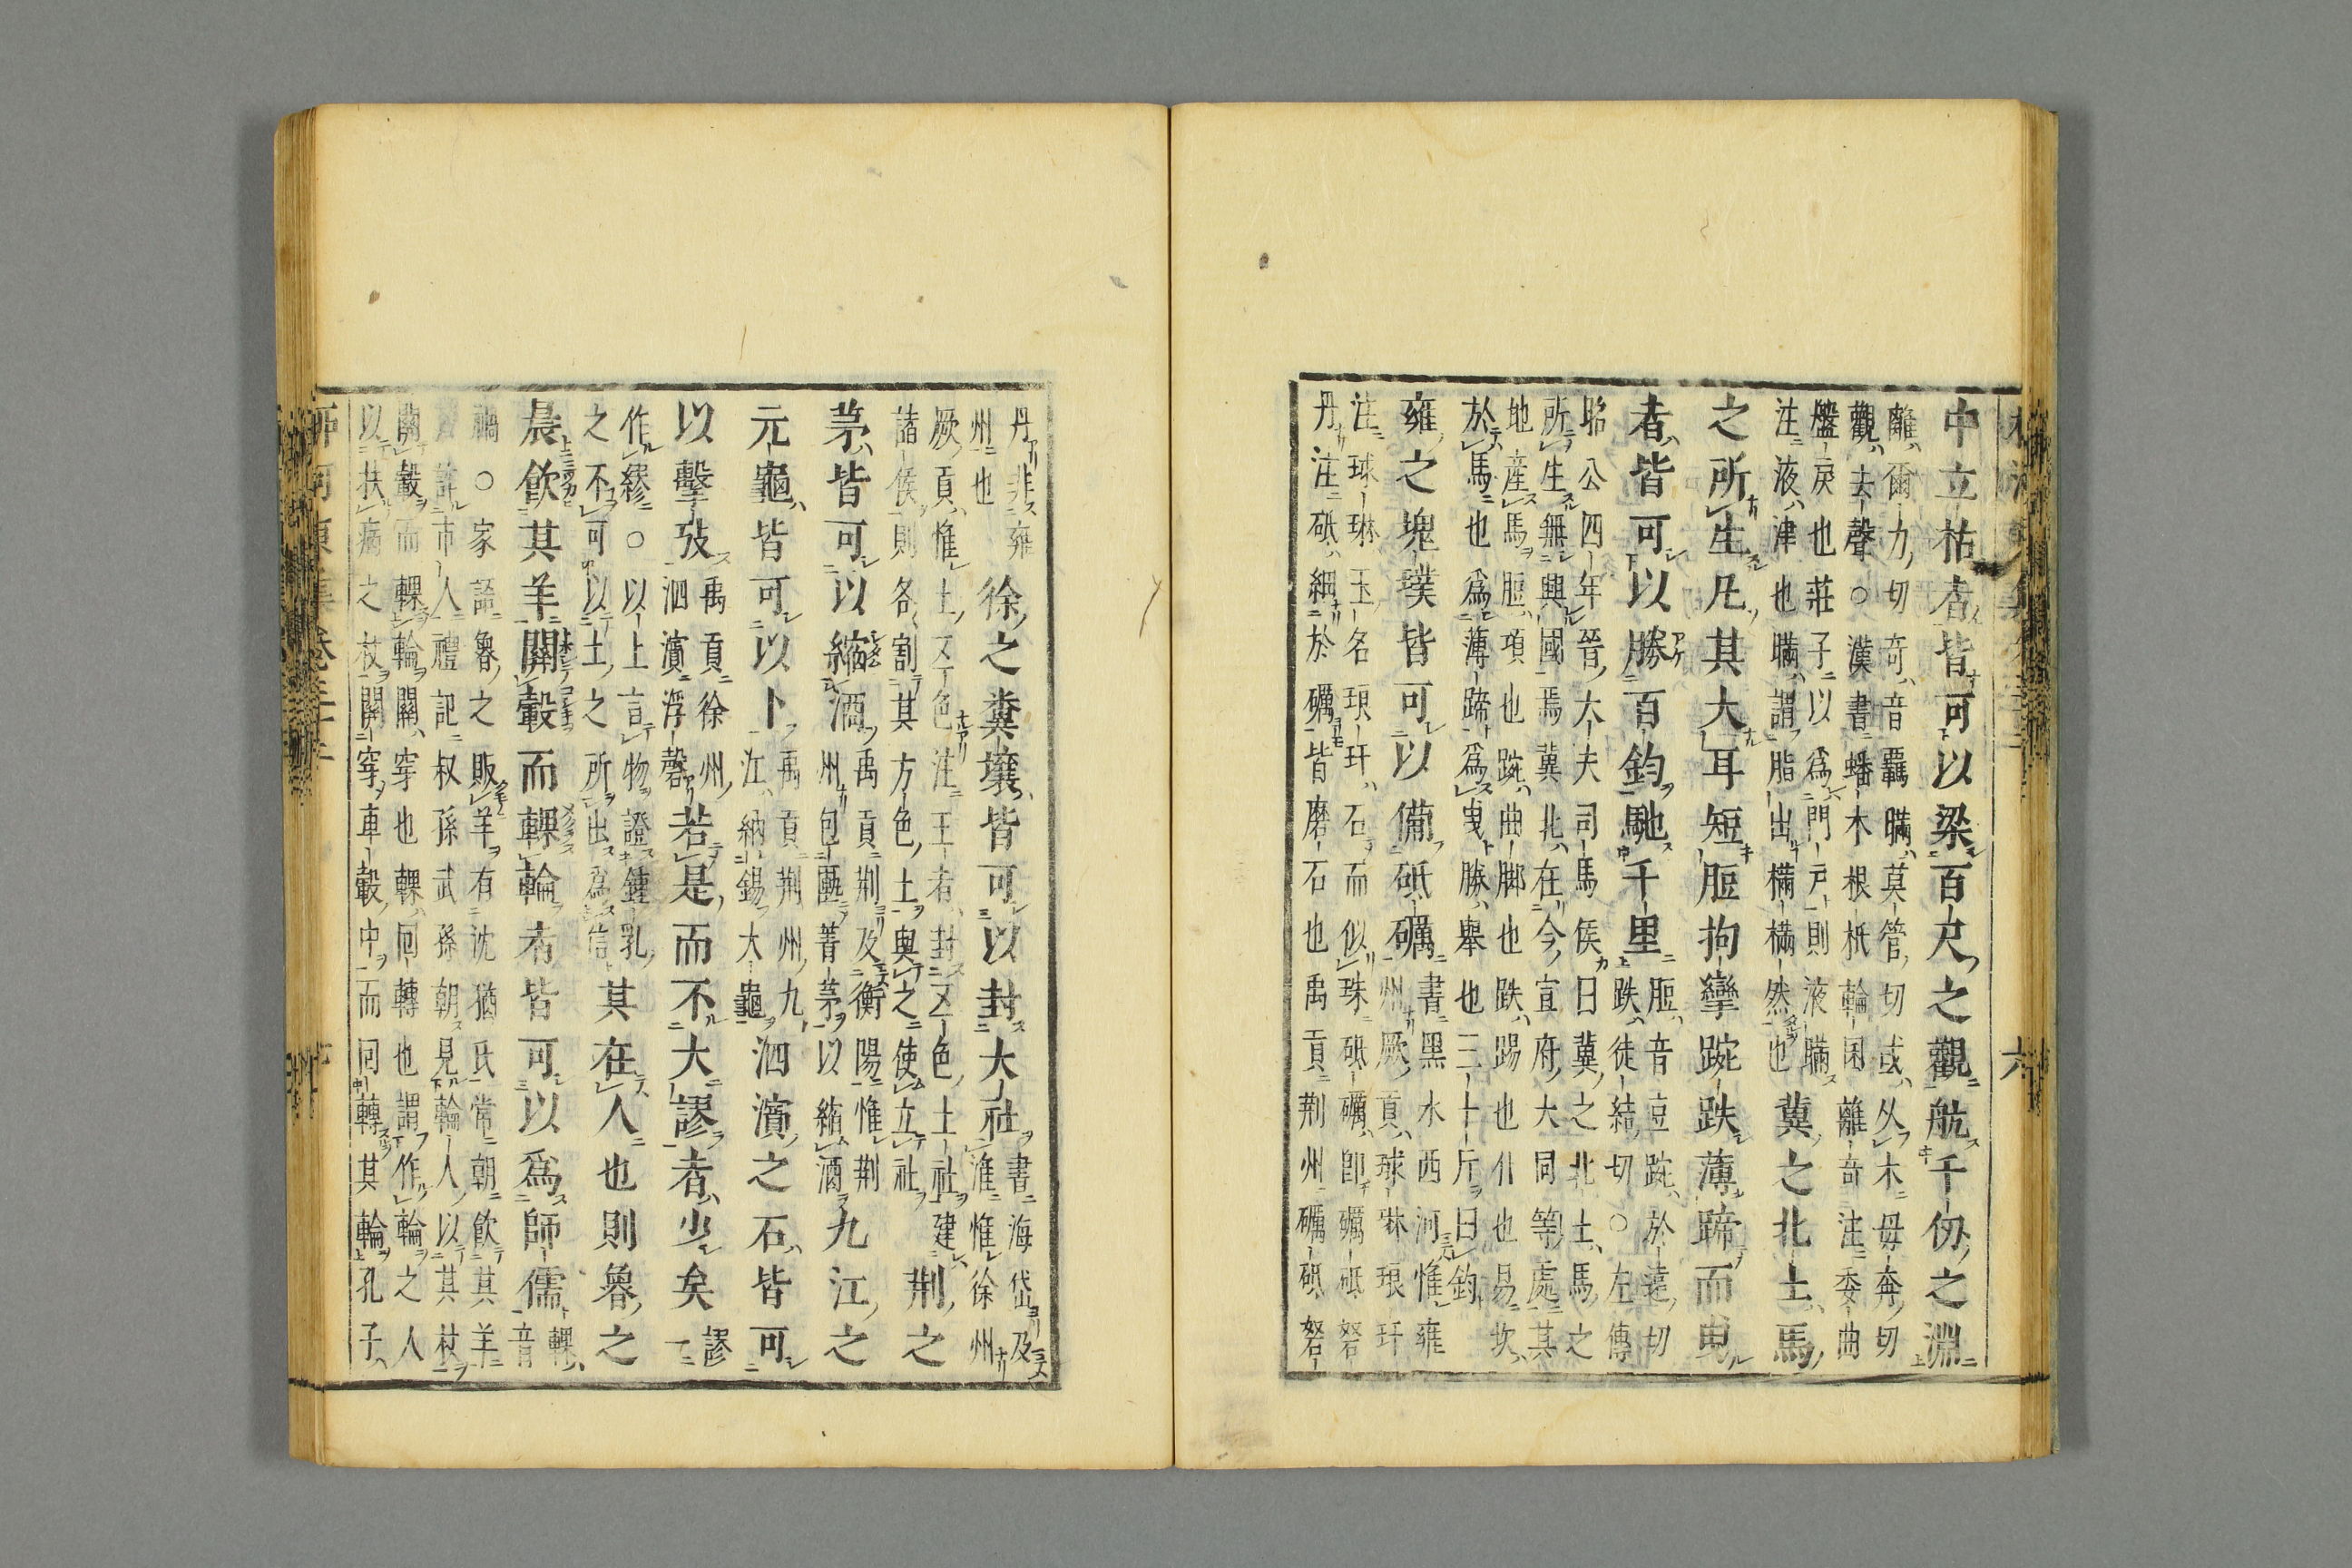 中立枯者皆可以梁百尺之觀航千仞之淵
離爾力切奇音羈瞞莫管切或从木毋奔切
觀去聲○漢書蟠木根柢輪囷離奇注委曲
盤戾也莊子以爲門戶則液瞞
注液津也瞞謂脂出樠樠然也
冀之北土馬
之所生凡其大耳短脰拘攣踠跌薄蹄而曳
者皆可以勝百鈞馳千里
脰音豆踠於遠切
跌徒結切○左傳
昭公四年晉大夫司馬侯曰冀之北土馬之
所生無興國焉冀北在今宣府大同等處其
地產馬脰項也踠曲脚也跌踢也仆也易坎
於馬也爲薄蹄爲曳勝舉也三十斤曰鈞
雍之塊璞皆可以備砥礪
書黑水西河惟雍
州厥貢球琳琅玕
注球琳玉名琅玕石而似珠砥礪卽礪砥砮
丹注砥細於礪皆磨石也禹貢荆州礪砥砮
六
丹非雍
州也
徐之糞壤皆可以封大社
書海岱及
淮惟徐州
厥貢惟土五色注王者封五色土社建
諸侯則各割其方色土與之使立社
荆之
茅皆可以縮酒
禹貢荆及衡陽惟荆
州包匭菁茅以縮酒
九江之
元龜皆可以卜
禹貢荆州九
江納錫大龜
泗濱之石皆可
以擊攷
禹貢徐州
泗濱浮磬
若是而不大謬者少矣
謬
一
作繆○以上言物證鍾乳
之不可以土之所出爲信
其在人也則魯之
晨飲其羊關轂而輠輪者皆可以爲師儒
輠
音
禍○家語魯之販羊有沈猶氏常朝飲其羊
以詐市人禮記叔孫武孫朝見輪人以其杖
關轂而輠輪關穿也輠回轉也謂作輪之人
以扶病之杖關穿車轂中而回轉其輪孔子